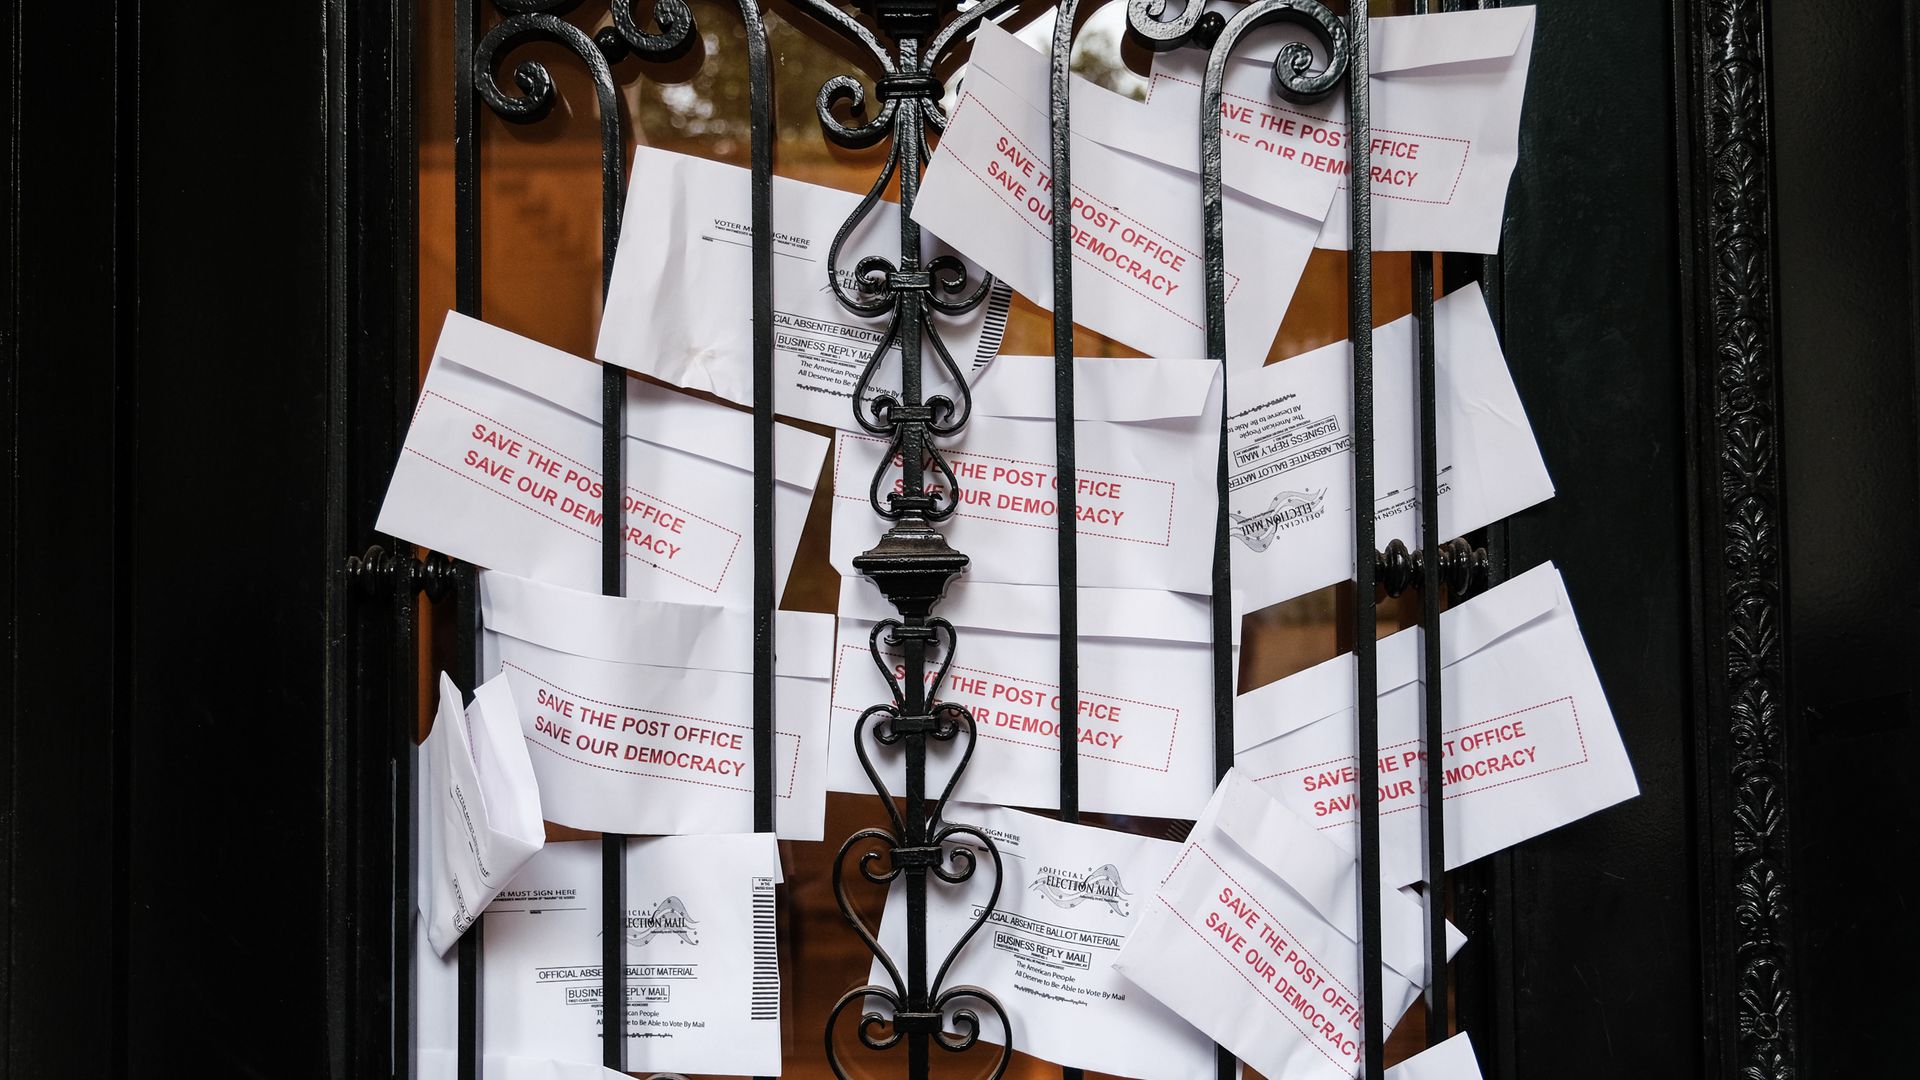 SAVE THE POST OFFICE
SAVE OUR DEMOCRACY
AVE THE POST FFICE
OUR DEMOCRACY
VOTER MUST SIGN HERE
CIAL ABSENTEE BALLOT MATER
BUSINESS REPLY MA
The American Peop
All Deserve to Be Able to Vote By
SAVE THE POS OFFICE
SAVE OUR DEM RACY
SAVE THE POST OFFICE
SAVE OUR DEMOCRACY
OFFICIAL
ELECTION MAIL
CIAL ABSENTEE BALLOT MATER
BUSINESS REPLY MAIL
The American People
All Deserve to Be Able to
SAVE THE POST OFFICE
SAVE OUR DEMOCRACY
THE POST OFFICE
UR DEMOCRACY
SAVE THE POST OFFICE
SAVE OUR DEMOCRACY
ER MUST SIGN HERE
ICIAL
ELECTION MAIL
OFFICIAL ABSE BALLOT MATERIAL
BUSINE EPLY MAIL
The ican People
to Be Able to Vote By Mail
SIGN HERE
OFFICIAL
ELECTION MAIL
OFFICIAL ABSENTEE BALLOT MATERIAL
BUSINESS REPLY MAIL
The American People
All Deserve to Be Able to Vote By Mail
SAVE THE POST OFFIC
SAVE OUR DEMOCRACY